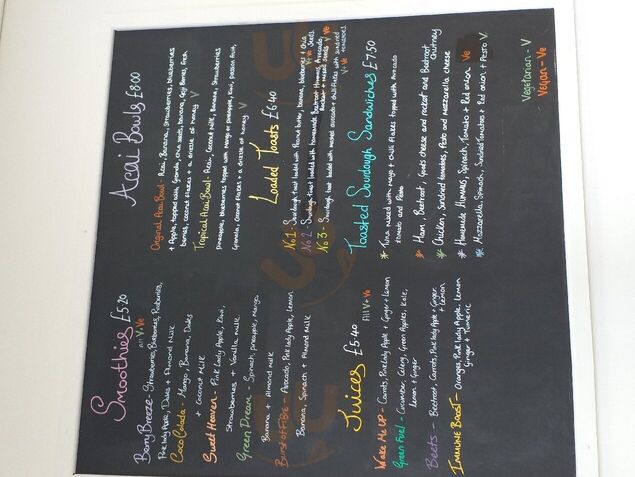 Smoothies £5.20
All V+Ve
Berry Breeze - Strawberries, Blueberries, Rasberries,
Pink lady Apple, Dates + Almond Milk
Coco Colada - Mango, Banana, Dates
+ Coconut Milk
Sweet Heaven - Pink Lady Apple, Kiwi,
Strawberries + Vanilla Milk
Green Dream - Spinach, pineapple, Mango,
Banana + Almond Milk
Burst of Fibre - Avocado, Pink lady Apple, Lemon
Banana, Spinach + Almond Milk
Juices £5.40
All V+Ve
Wake Me Up - Carrots, Pink lady Apple + Ginger + Lemon
Green Fuel - Cucumber, Celery, Green Apples, Kale,
Lemon + Ginger
Beets - Beetroot, Carrots, Pink lady Apple + Ginger
+ Lemon
Immune Boost - Oranges, Pink lady Apple, Lemon
Ginger + Turmeric
Acai Bowls £8.00
Original Acai Bowl - Acai, Banana, Strawberries, blueberries
+ Apple, topped with, Granola, chia seeds, banana, Goji Berries, fresh
berries, coconut flakes + a drizzle of honey V
Tropical Acai Bowl - Acai, Coconut Milk, Banana, Strawberries
pineapple, blueberries topped with mango or pineapple, kiwi, passion fruit,
Granola, coconut flakes + a drizzle of honey V
Loaded Toasts £6.40
No 1 - Sourdough toast loaded with Peanut butter, banana, blueberries + chia
seeds V+Ve
No 2 - Sourdough toast loaded with homemade Beetroot Hummus, Avocado,
Rocket + mixed seeds V Ve
No 3 - Sourdough toast loaded with mashed avocado + chilli flakes with sundried
tomatoes V+Ve
Toasted Sourdough Sandwiches £7.50
* Tuna mixed with Mayo + Chilli flakes topped with Avocado
tomato and Pesto
* Ham, Beetroot, Goats cheese and rocket and Beetroot
Chutney
* Chicken, Sundried tomatoes, Pesto and Mozzarella cheese
* Homemade Hummus, Spinach, Tomatoes + Red onion Ve
* Mozzarella, Spinach, Sundried Tomatoes + Red onion + Pesto V
Vegetarian - V
Vegan - Ve